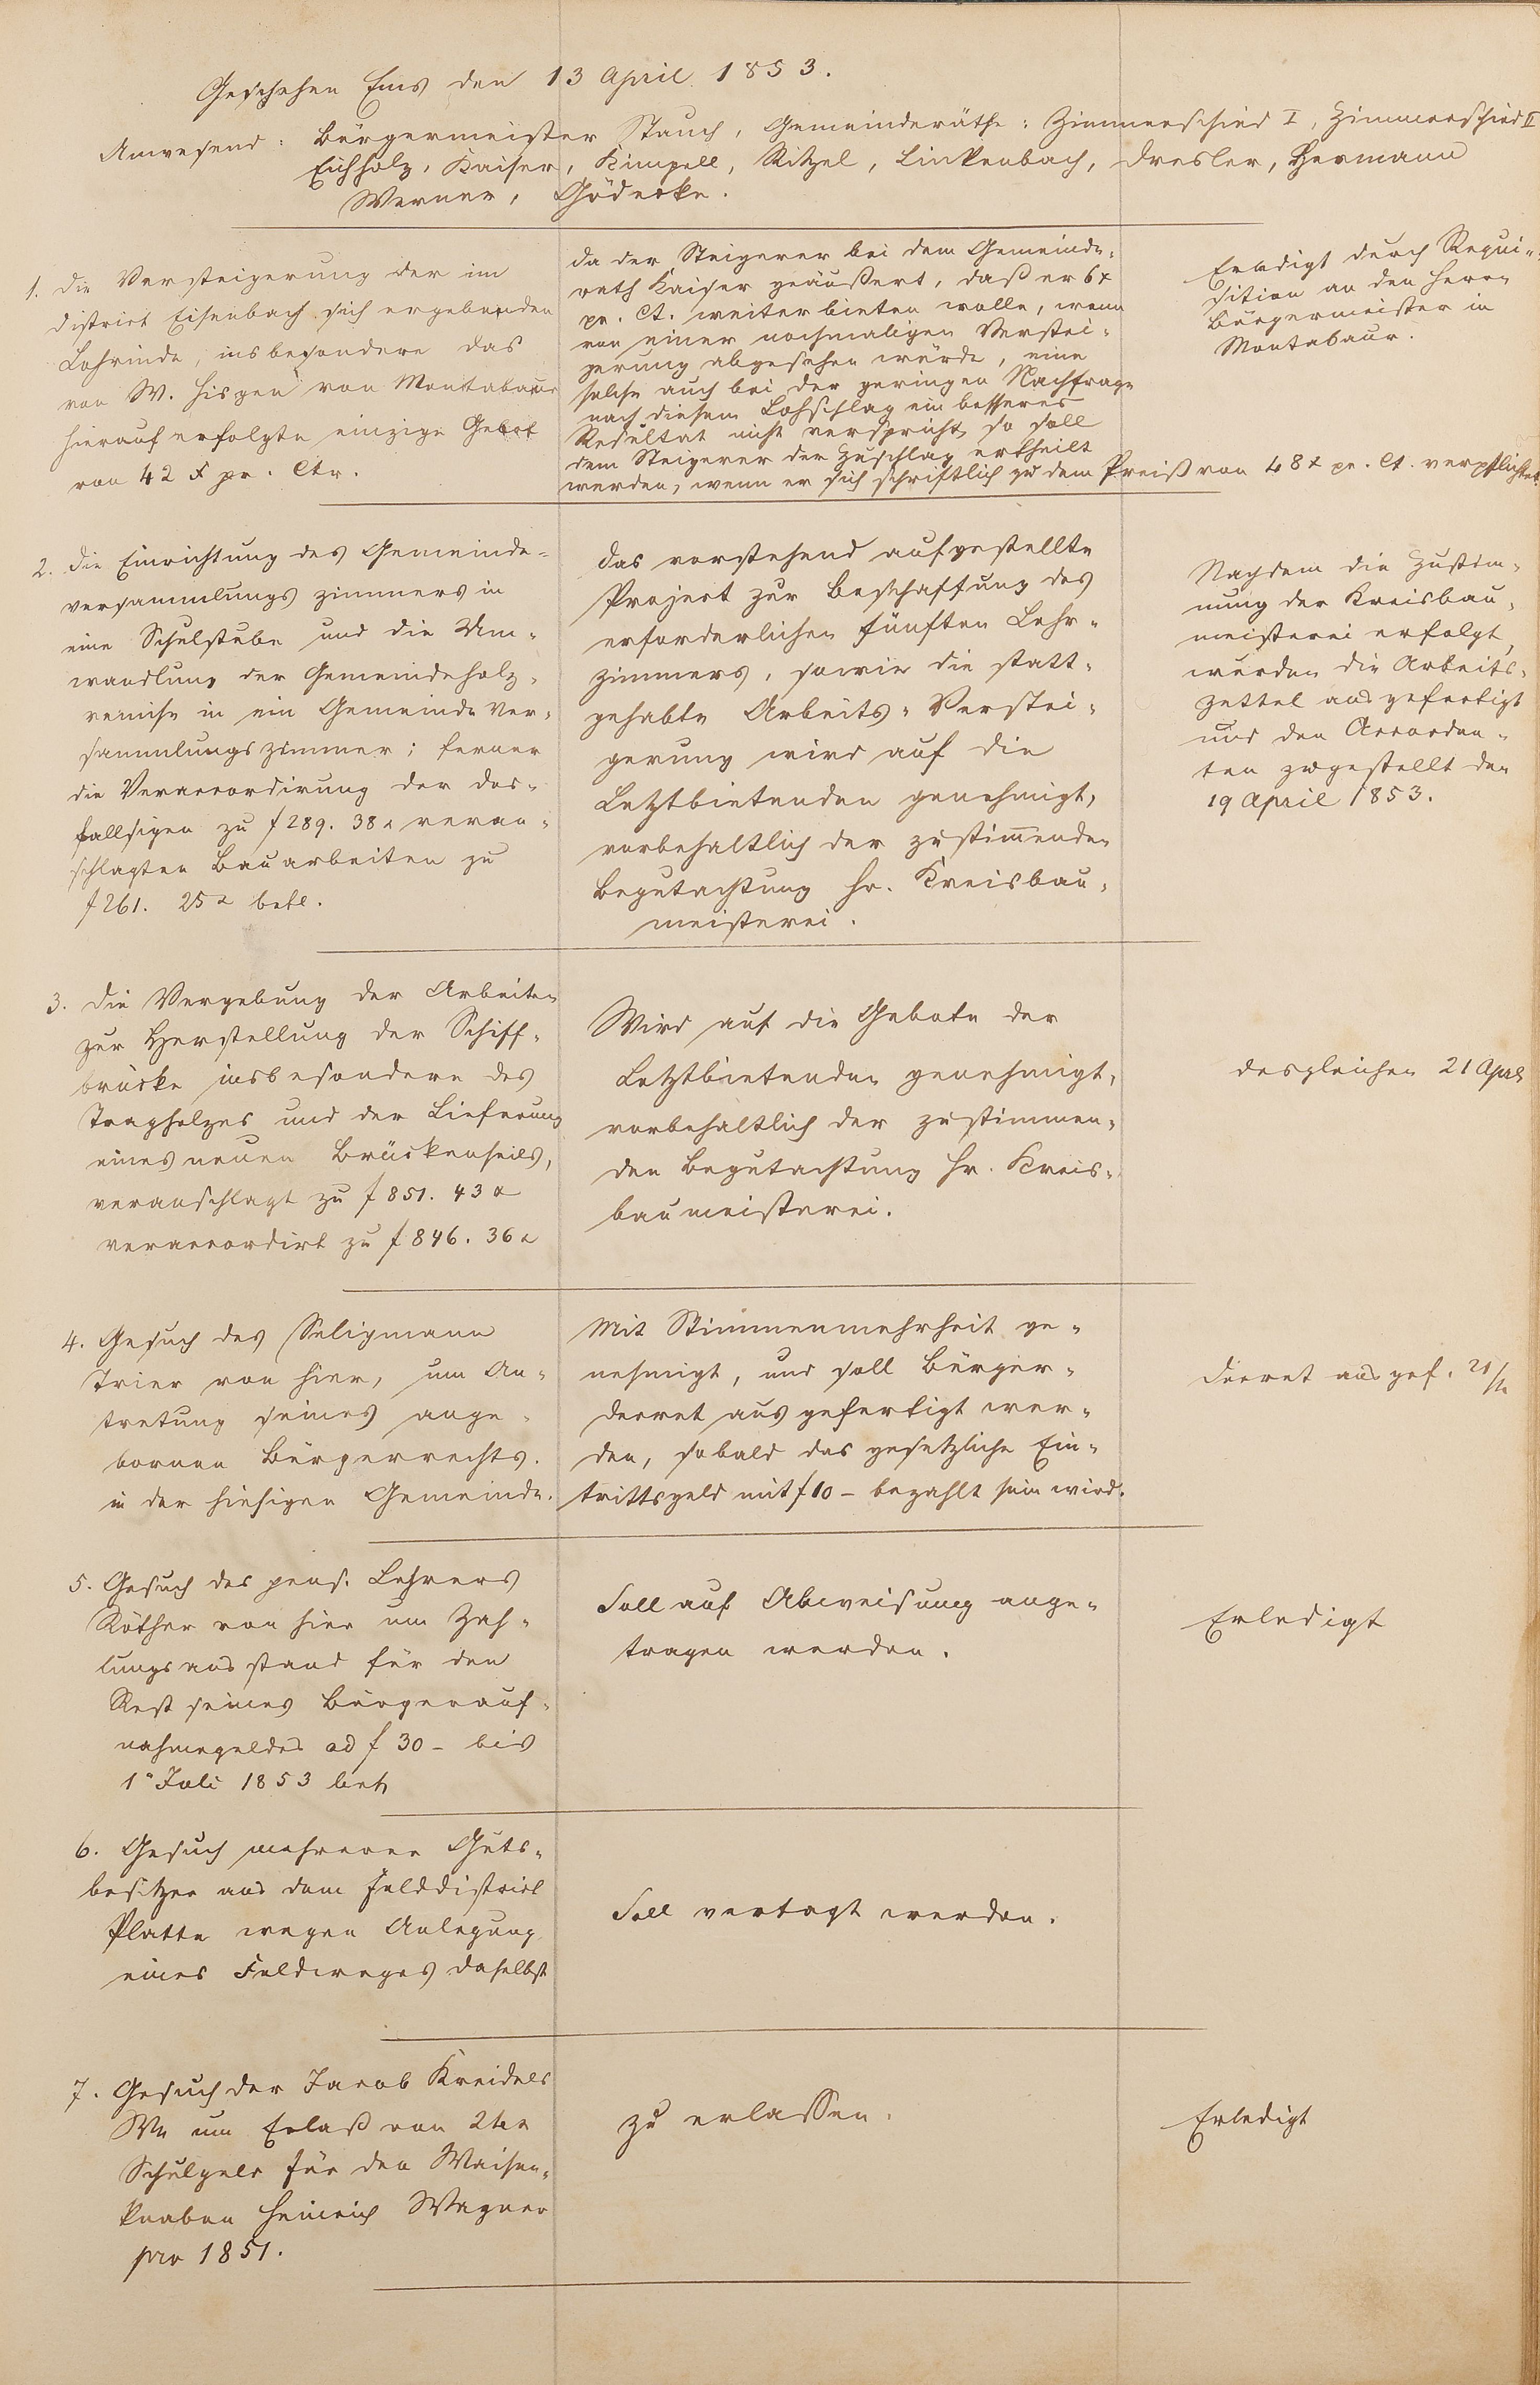 Geschehen Ems den 13 April 1853.
Anwesend: Bürgermeister Stauch, Gemeinderäthe: Zimmerschied I, Zimmerschied II
Eichholz, Kaiser, Kimpell, Ritzel, Linkenbach, Dresler, Hermann
Werner, Gödecke.
1. Die Versteigerung der im
District Eisenbach sich ergebenden
Lohrinde, insbesondere das
von W. Hisgen von Montabaur
hierauf erfolgte einzige Gebot
von 42 x pr. Ctr.
Da der Steigerer bei dem Gemeinde-
rath Kaiser geäußert, daß er 6 x
pr. Ct. weiter bieten wolle, wenn
von einer nochmaligen Verstei-
gerung abgesehen würde, eine
solche auch bei der geringen Nachfrage
nach diesem Lohschlag ein besseres
Resultat nicht verspricht, so soll
dem Steigerer der Zuschlag ertheilt
werden, wenn er sich schriftlich zu dem Preiß von 48 x pr. Ct. verpflichtet.
Erledigt durch Requi-
sition an den Herrn
Bürgermeister in
Montabaur.
2. Die Einrichtung des Gemeinde-
versammlungs zimmers in
eine Schulstube und die Um-
wandlung der Gemeindeholz-
remise in ein Gemeinde Ver-
sammlungszimmer; ferner
die Veraccordirung der des-
fallsigen zu f 289. 38 x veran-
schlagten Bauarbeiten zu
f 261. 25 x betr.
Das vorstehend aufgestellte
Project zur Beschaffung des
erforderlichen fünften Lehr-
zimmers, sowie die statt-
gehabte Arbeits-Verstei-
gerung wird auf die
Letztbietenden genehmigt,
vorbehaltlich der zustimenden
Begutachtung Hr. Kreisbau-
meisterei.
Nachdem die Zustim-
mung der Kreisbau-
meisterei erfolgt,
wurden die Arbeits-
zettel ausgefertigt
und den Accordan-
ten zugestellt den
19 April 1853.
3. Die Vergebung der Arbeiten
zur Herstellung der Schiff-
brücke insbesondere des
Tragholzes und der Lieferung
eines neuen Brückenseils,
veranschlagt zu f 851. 43 x
veraccordirt zu f 846. 36 x
Wird auf die Gebote der
Letztbietenden genehmigt,
vorbehaltlich der zustimmen-
den Begutachtung Hr. Kreis-
baumeisterei.
desgleichen 21 April
4. Gesuch des Seligmann
Trier von hier, um An-
tretung seines ange-
bornen Bürgerrechts.
in der hiesigen Gemeinde.
Mit Stimmenmehrheit ge-
nehmigt, und soll Bürger-
decret ausgefertigt wer-
den, sobald das gesetzliche Ein-
trittsgeld mit f 10 - bezahlt sein wird.
Decret ausgef. 21/4
5. Gesuch des pens. Lehrers
Köther von hier um Zah-
lungsausstand für den
Rest seines Bürgerauf-
nahmegeldes ad f 30 - bis
1n Juli 1853 betr
Soll auf Abweisung ange-
tragen werden.
Erledigt
6. Gesuch mehrerer Guts-
besitzer aus dem Felddistrict
Platte wegen Anlegung
eines Feldweges daselbst
Soll vertagt werden.
7. Gesuch der Jacob Kreidels
We um Erlaß von 2tem
Schulgeld für den Waisen-
knaben Heinrich Wagner
pro 1851.
zu erlassen.
Erledigt